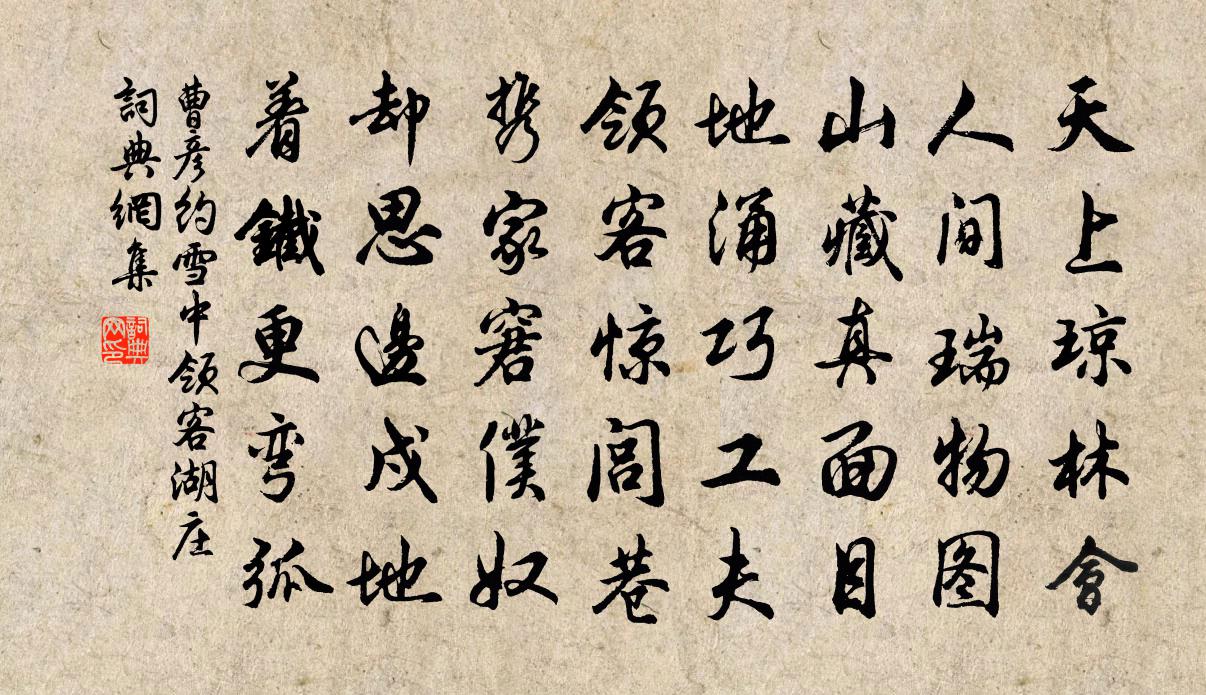 天上琼林會
人间瑞物图
山藏真面目
地涌巧工夫
领客惊闾巷
携家窘僕奴
却思邊戍地
着鐵更弯弧
曹彦約雪中领客湖庄
詞典網集
詞典网印